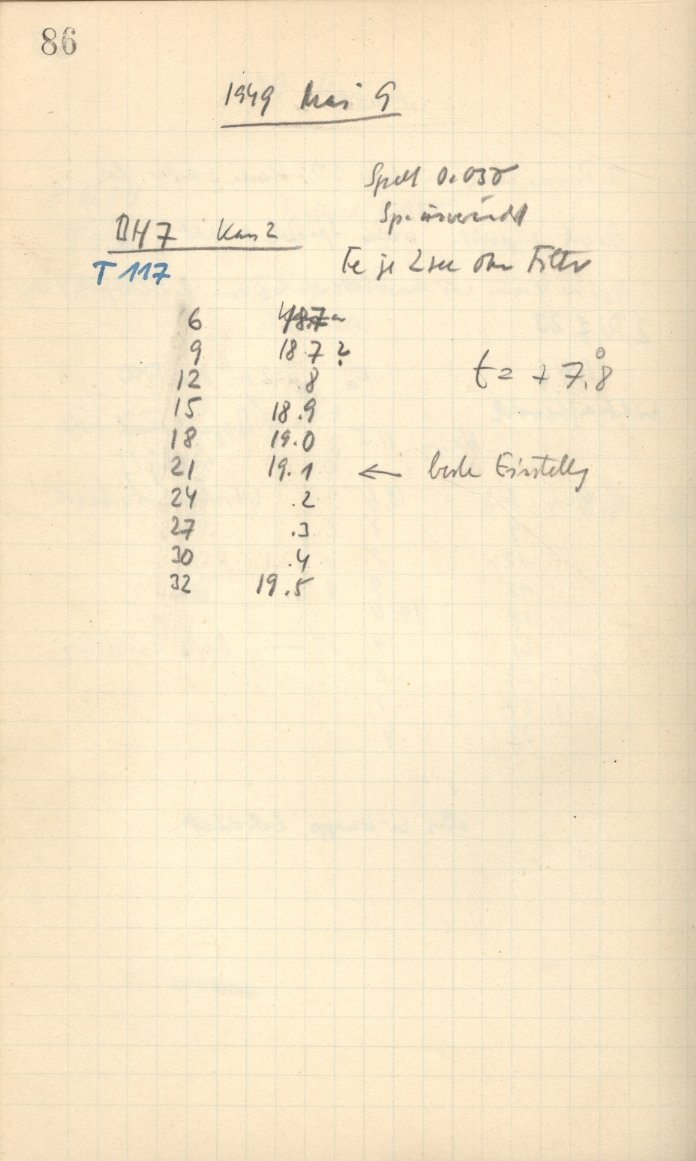 86
1949 Mai 9
Spalt 0.030
DH7 Kam 2
T 117
Fe je 2 sec ohne Filter
6
9 18.7 ?
12 .8
t = + 7.8°
15 18.9
18 19.0
21 19.1 ← beste Einstellg
24 .2
27 .3
30 .4
32 19.5